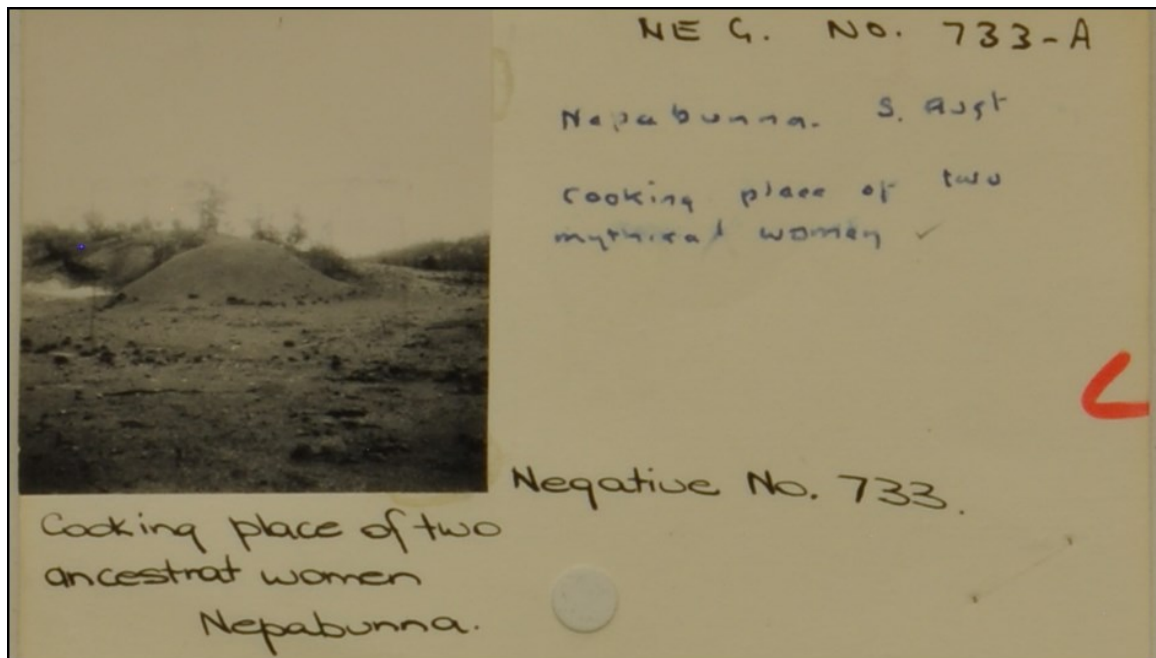 NEG. NO. 733-A
Nepabunna. S. Aust
Cooking place of two
mythical women ✓
Negative No. 733.
Cooking place of two
ancestrat women
Nepabunna.